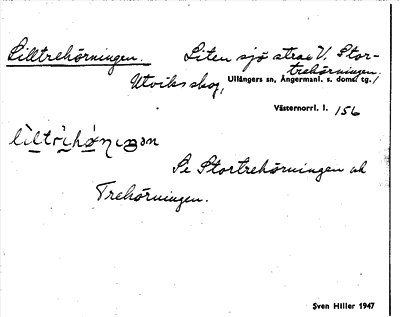 Lilltrehörningen. Liten sjö strax V. Stor-
trehörningen,
Utviks skog,
Ullångers sn, Ångermanl. s. doms. tg./
Västernorrl. l. 156
Se Stortrehörningen och
Trehörningen.
Sven Hiller 1947